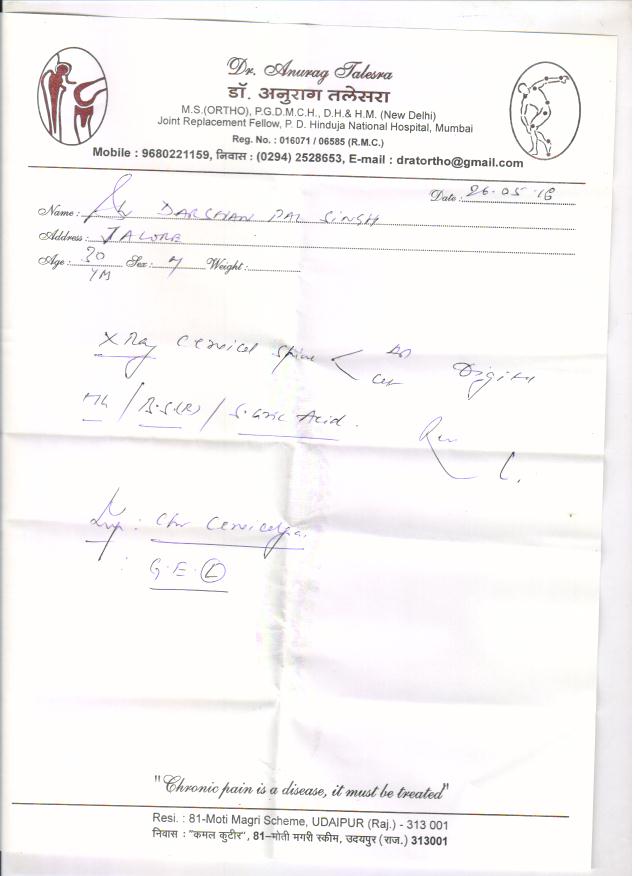 Dr. Anurag Talesra
डॉ. अनुराग तलेसरा
M.S.(ORTHO), P.G.D.M.C.H., D.H.& H.M. (New Delhi)
Joint Replacement Fellow, P. D. Hinduja National Hospital, Mumbai
Reg. No. : 016071 / 06585 (R.M.C.)
Mobile : 9680221159, निवास : (0294) 2528653, E-mail : dratortho@gmail.com
Date : 26.05.16
Name : DARSHAN PAL SINGH
Address : JALORE
Age : 30 Sex : M Weight :
X Ray Cervical Spine
/ S. Uric Acid
Imp : Chr Cervicalgia
: G.E. (L)
"Chronic pain is a disease, it must be treated"
Resi. : 81-Moti Magri Scheme, UDAIPUR (Raj.) - 313 001
निवास : "कमल कुटीर", 81–मोती मगरी स्कीम, उदयपुर (राज.) 313001